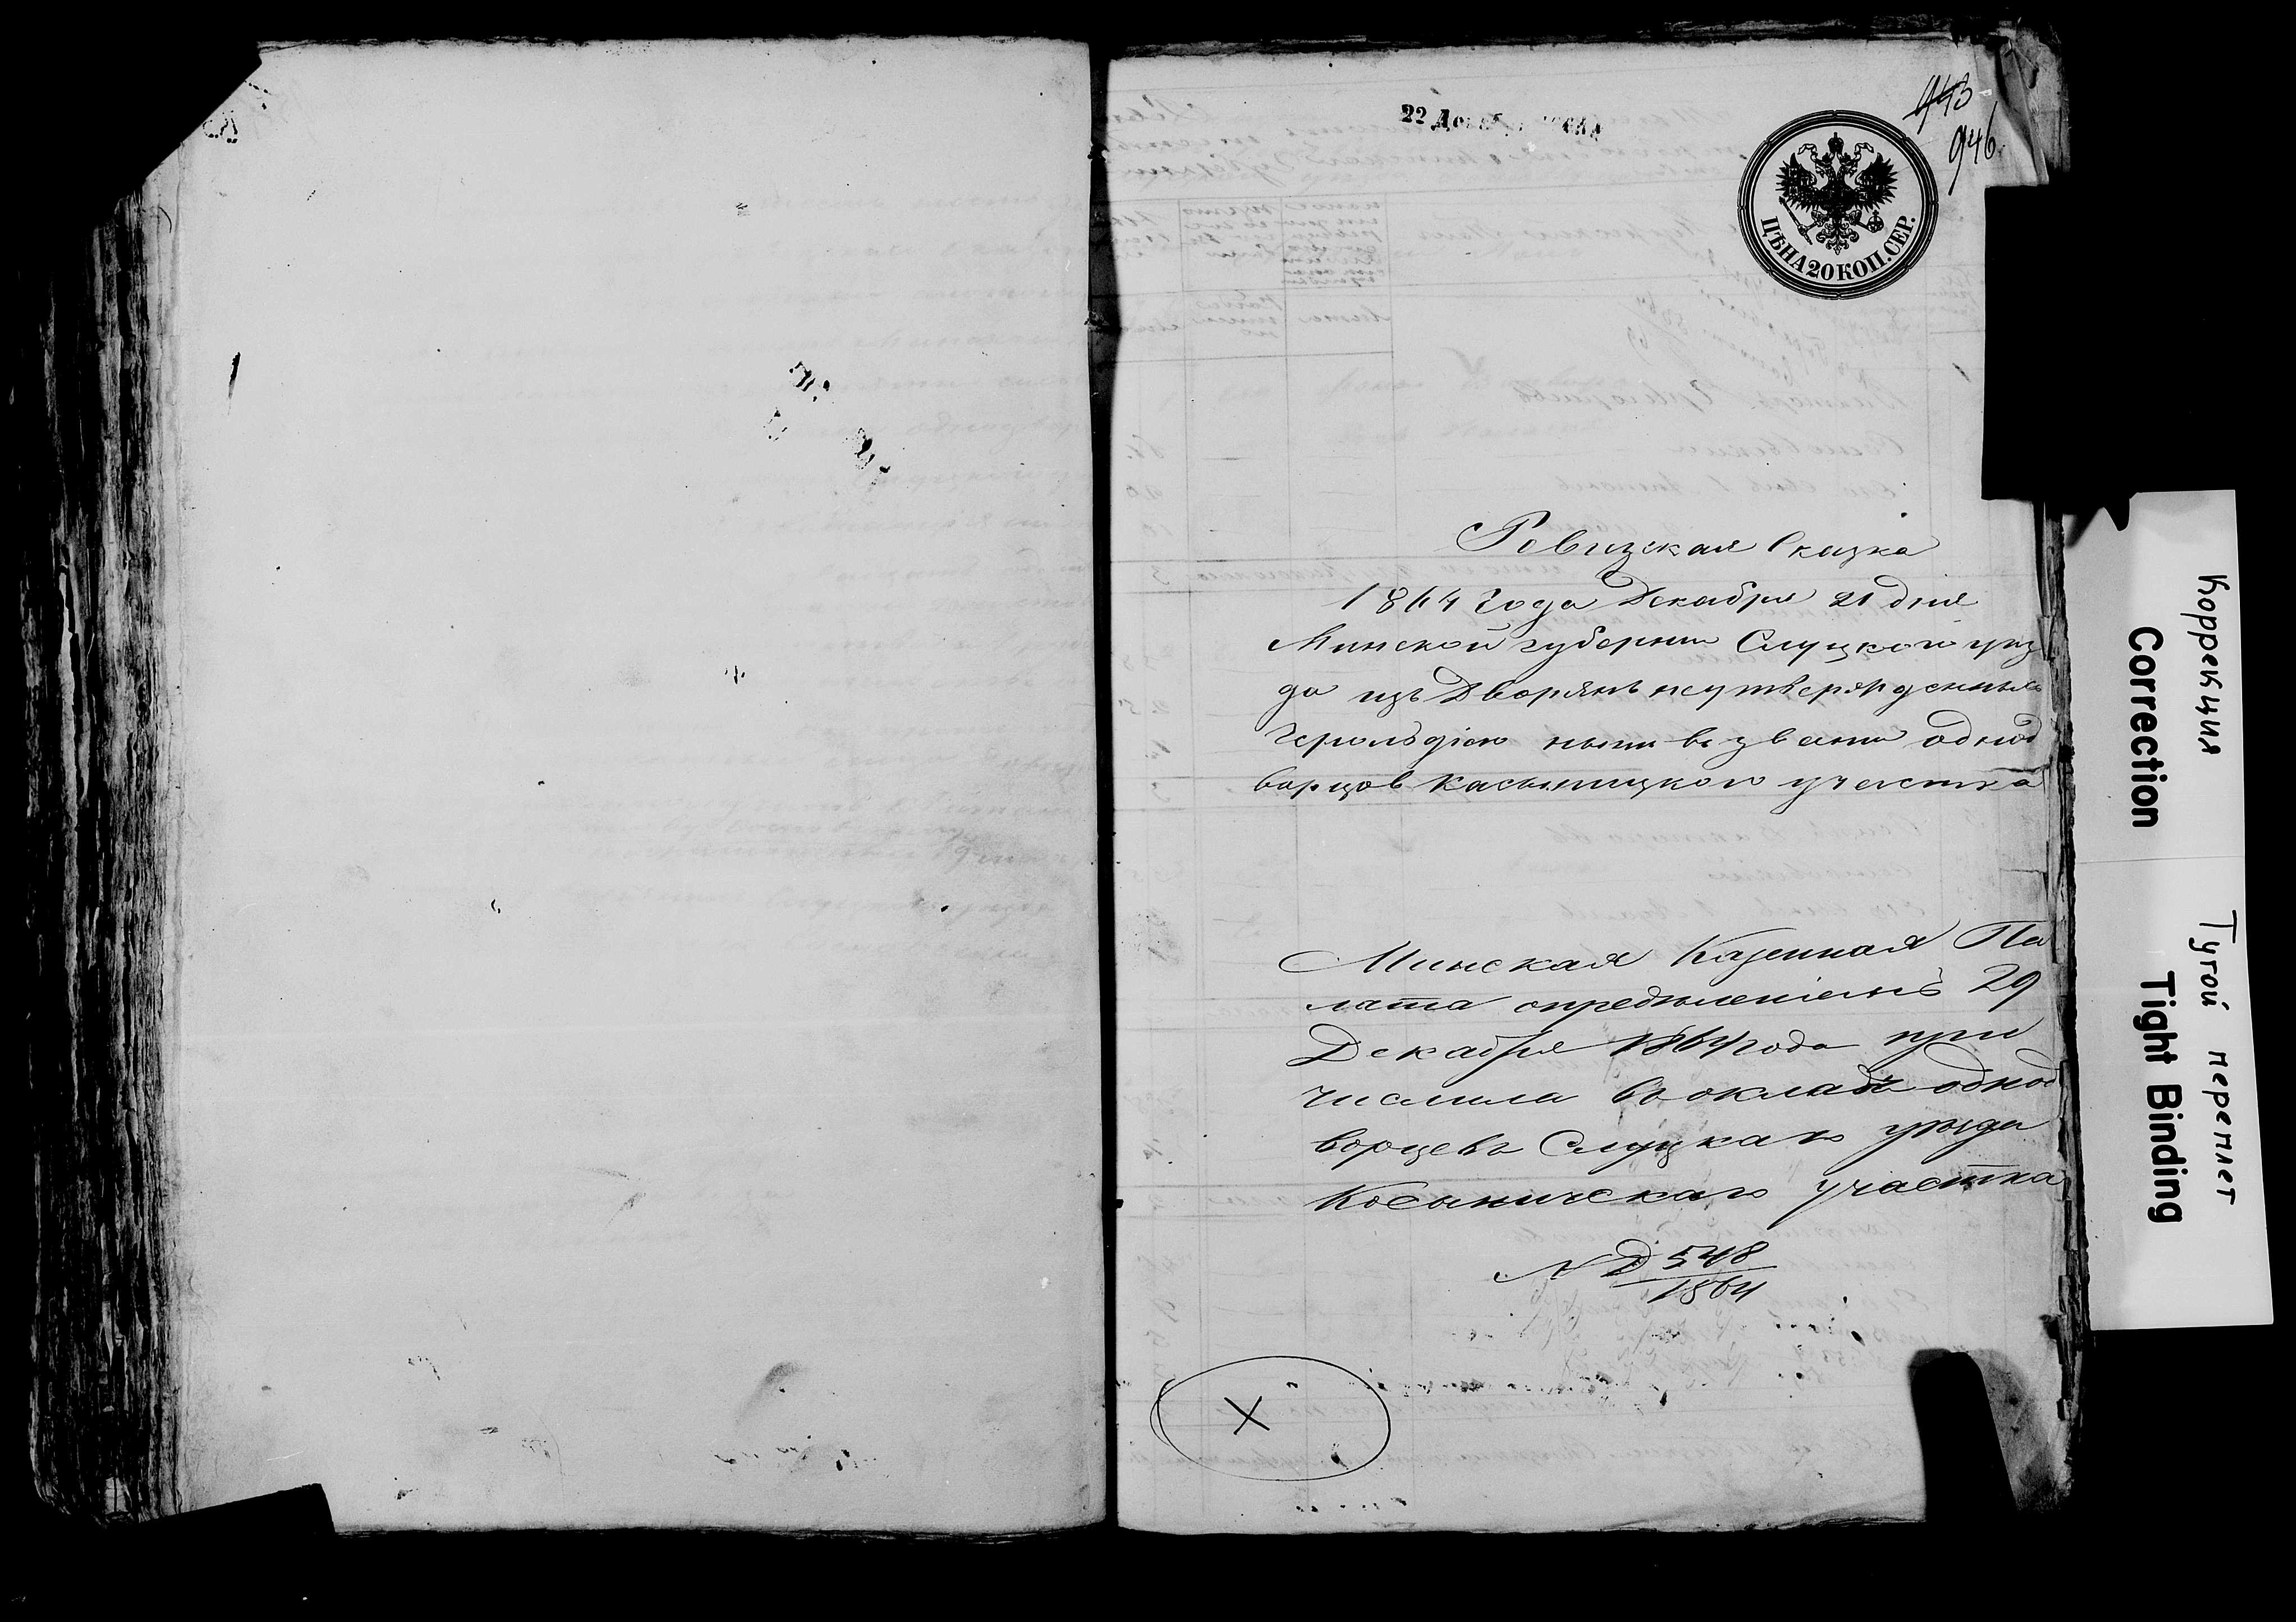 943
946
22 Декабря 1864
ЦѢНА 20 КОП. СЕР.
Ревизская Сказка
1864 года Декабря 21 дня
Минской губернии Слуцкого уѣз
да изъ Дворянъ неутвержденныхъ
Герольдіею ныни въ звани однод
ворцов Касыницкого участка
Минская Казенная Па
лата опредѣленіемъ 29
Декабря 1864 года при
числила въ окладъ однод
ворцевъ Слуцкаго уѣзда
Косыничскаго участка
№ Д 548
1864
X
Коррекция Тугой переплет
Correction Tight Binding